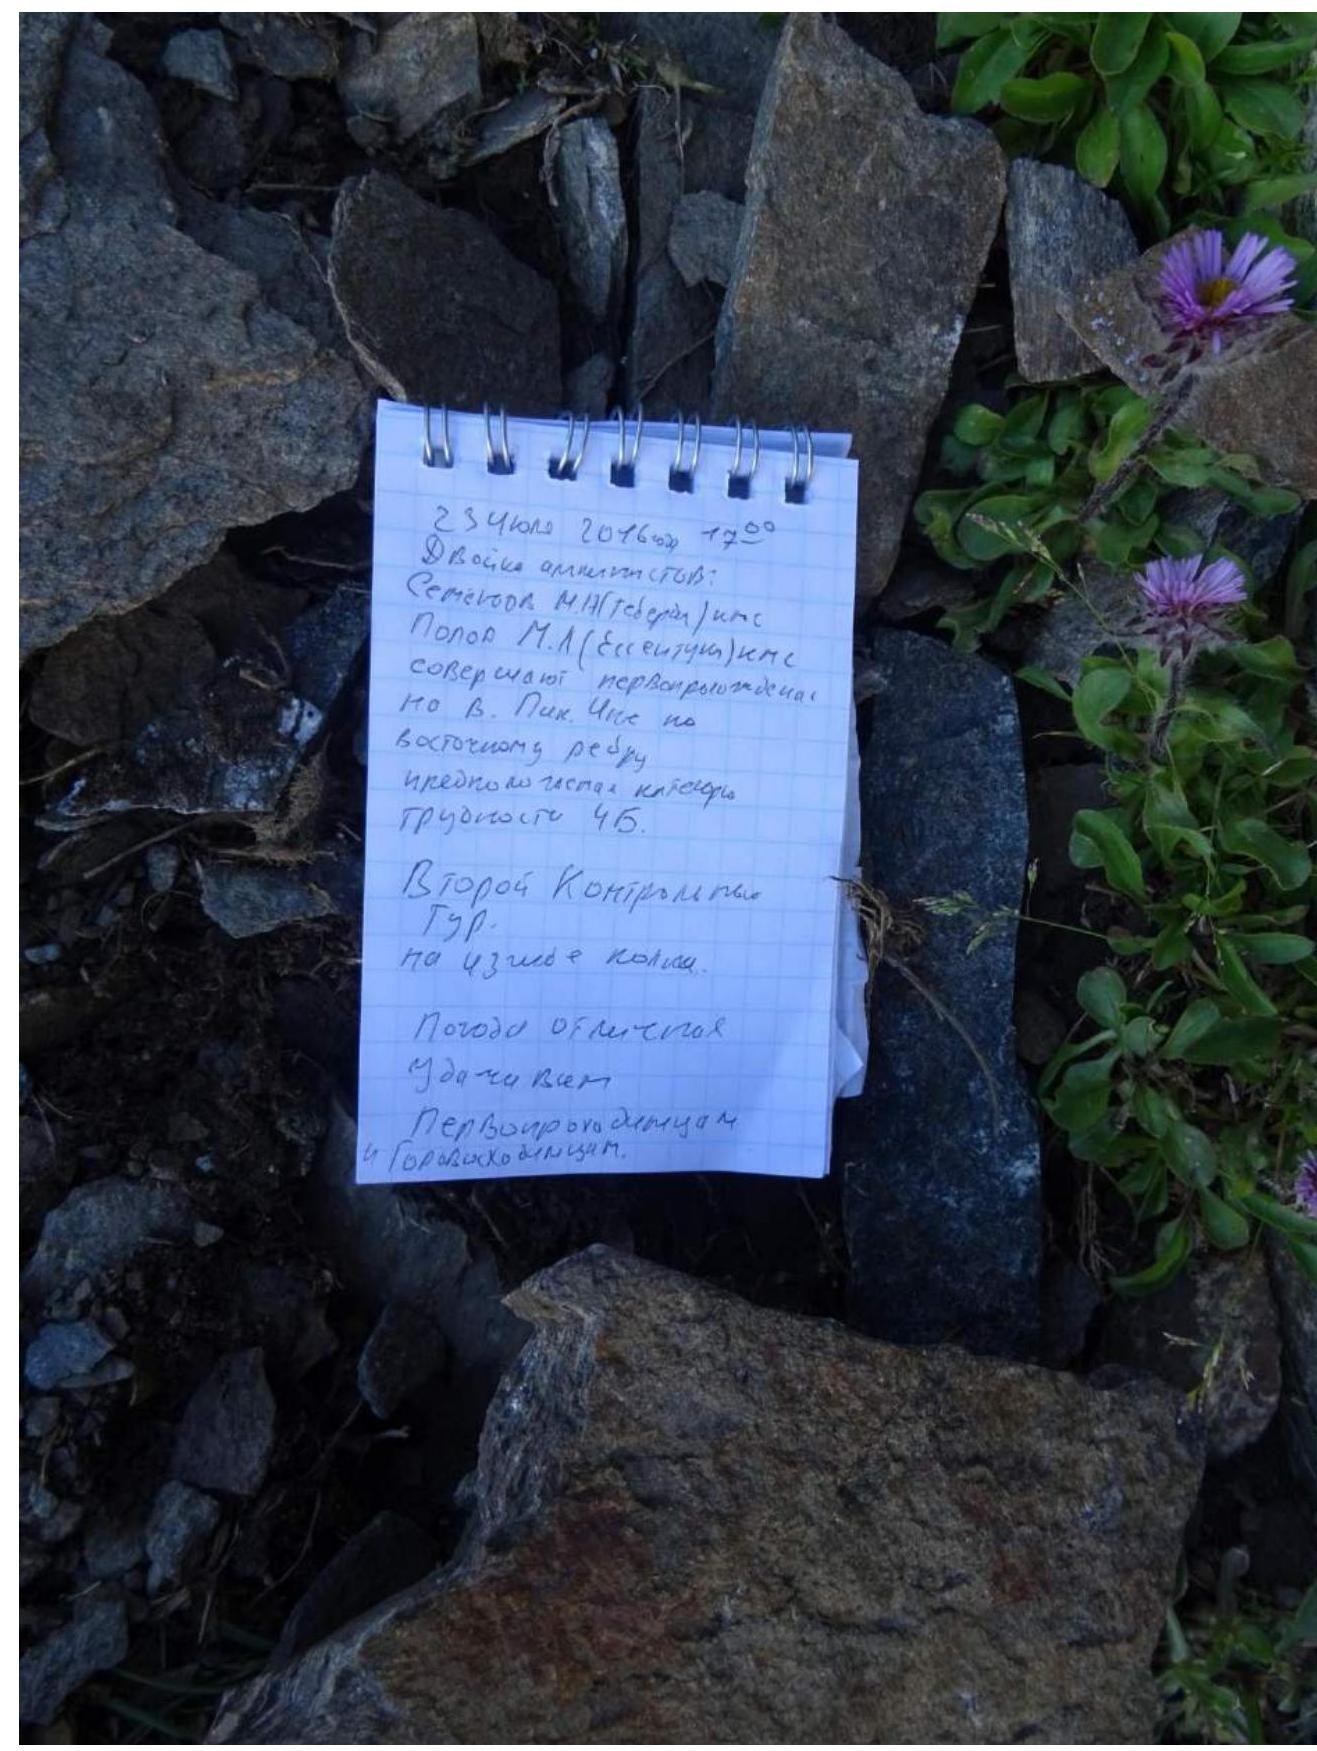 23 Июля 2016 года 17 00
Двойка альпинистов:
Семенов М.Н (Теберда) кмс
Попов М.Л (Ессентуки) кмс
совершают первопрохождение
на в. Пик. Ине по
восточному ребру
предпологаемая категория
трудности 4Б.
Второй Контрольный
Тур.
на изгибе
Погода отличная
Удачи Вам
Первопроходимцам
и Горовосходимцам.